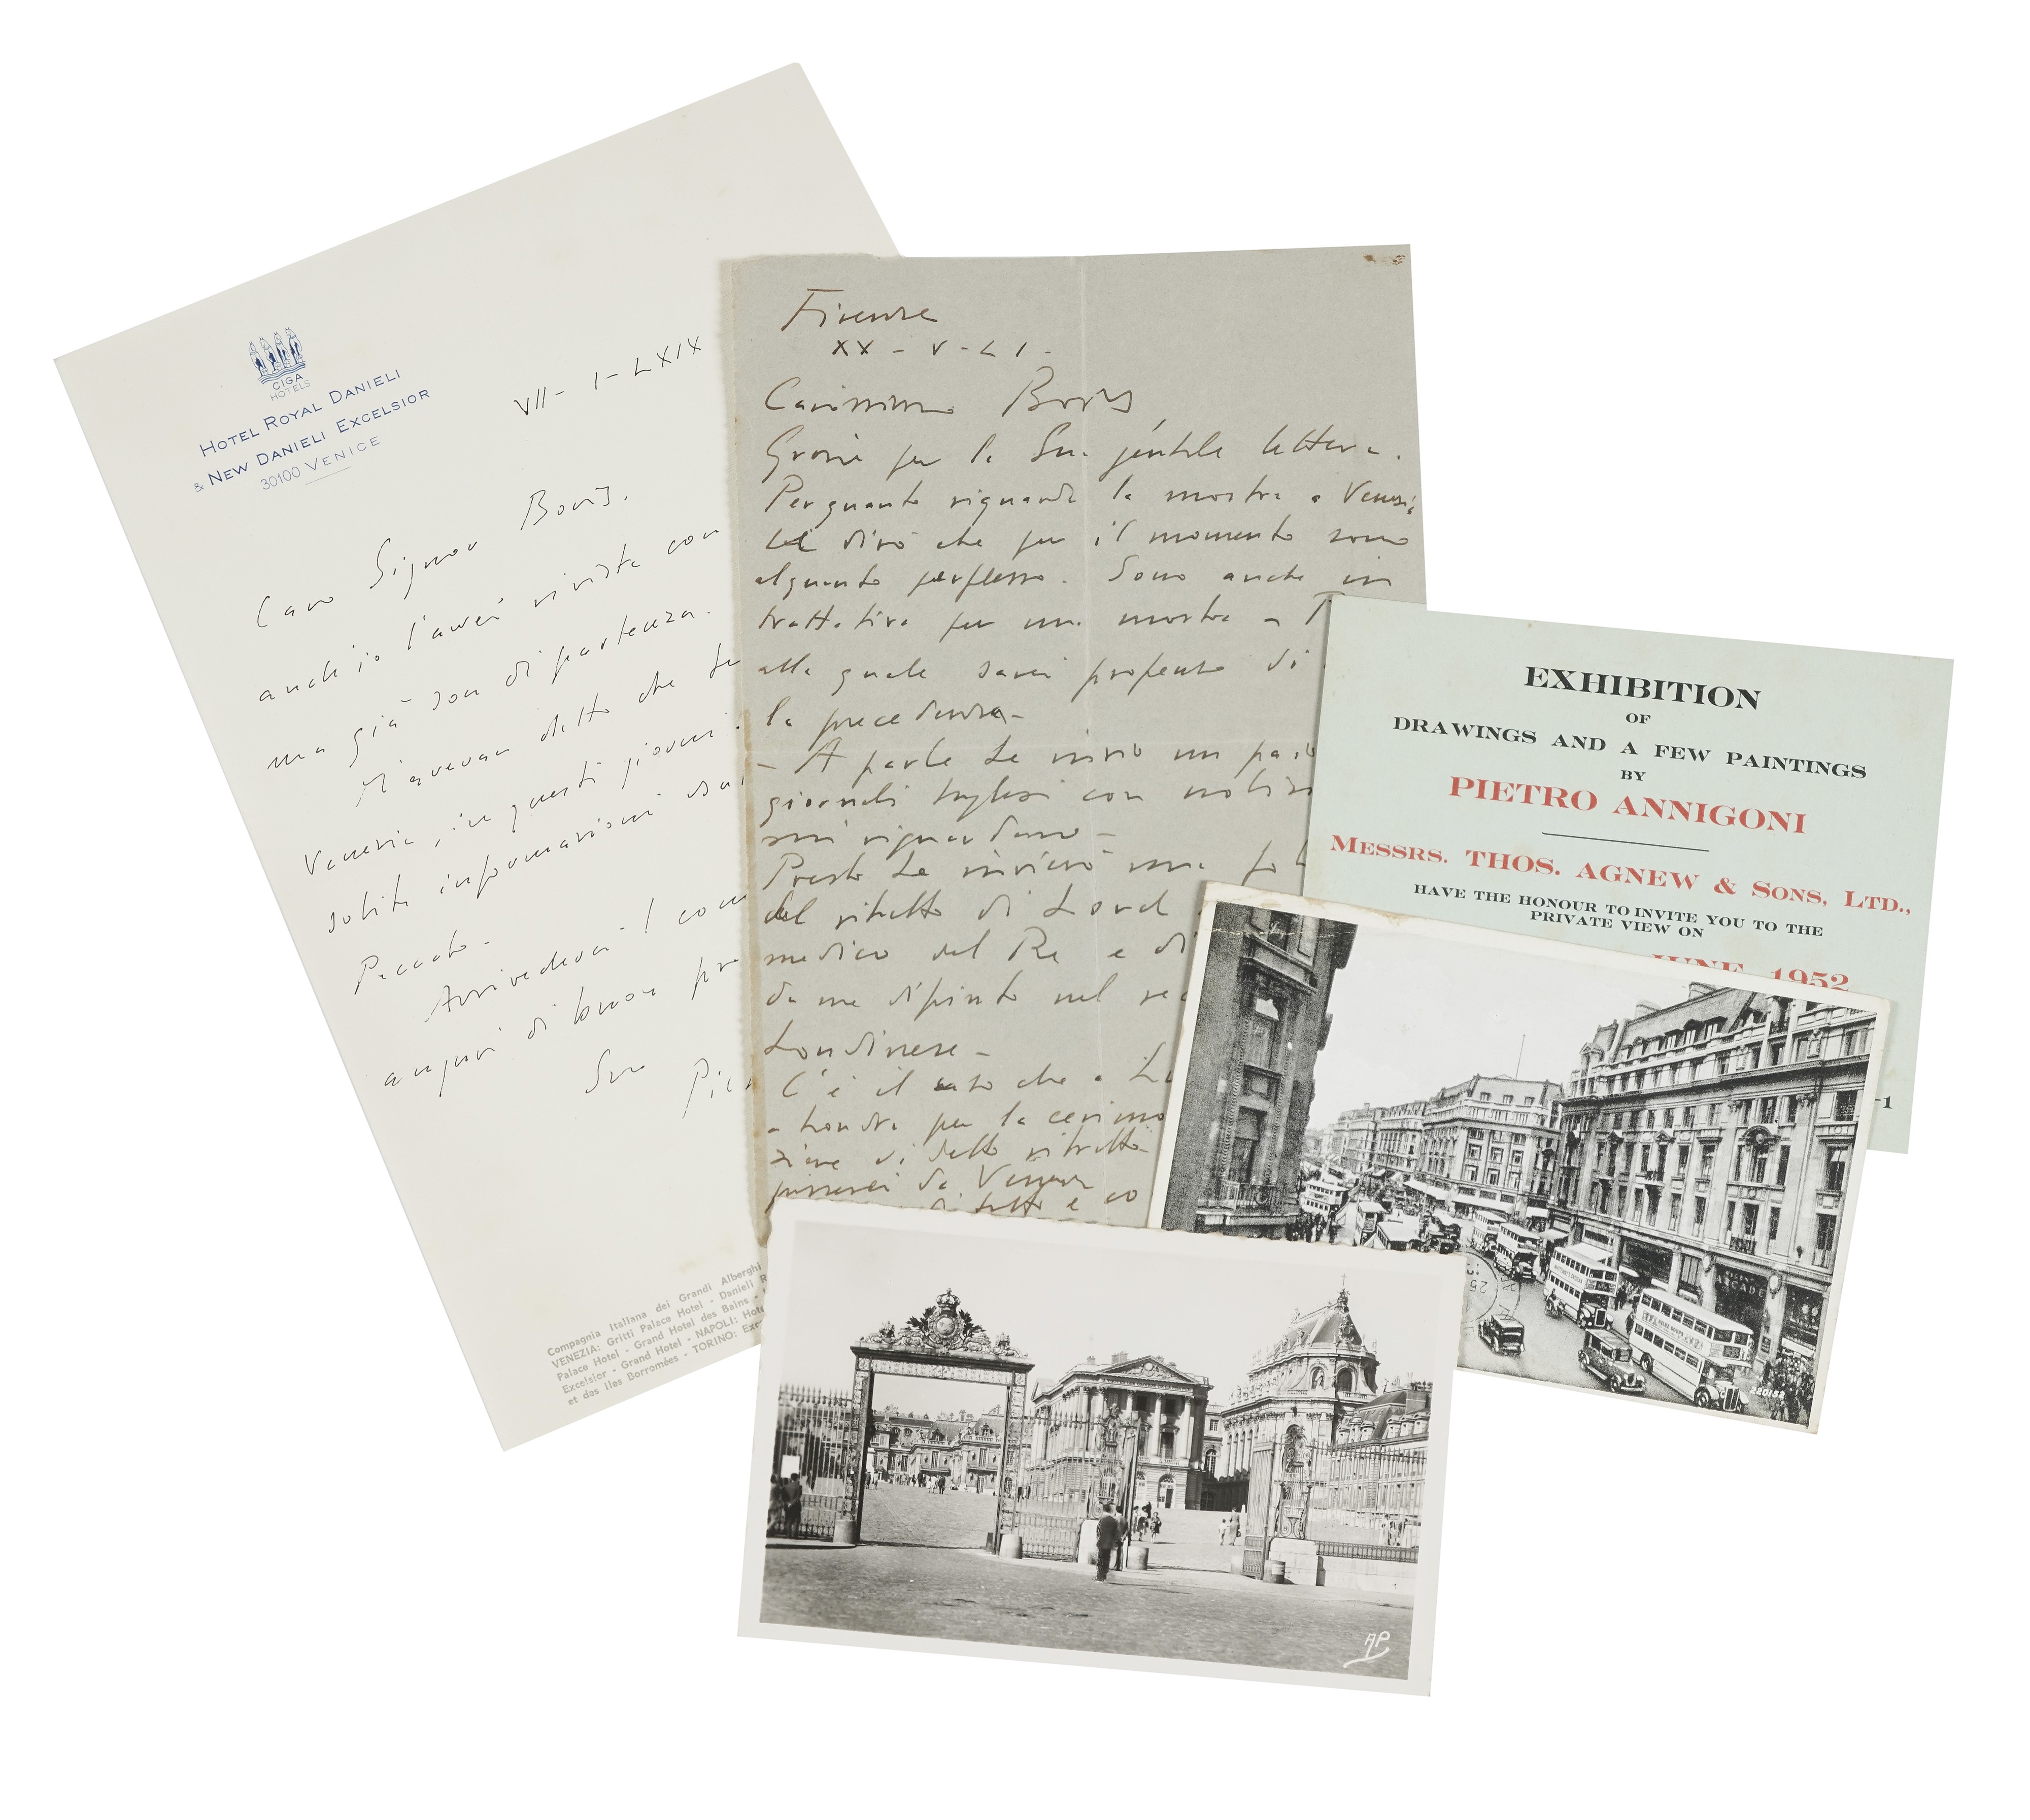 CIGA
HOTELS
HOTEL ROYAL DANIELI
& NEW DANIELI EXCELSIOR
30100 VENICE
VII - I - LXIX
Caro Signor Boris.
anch'io l'avrei rivista con
ma già son di partenza.
M'avevan detto che
Venezia, in questi giorni
subito informazioni
Peccato -
Arrivederci! con
auguri di buon
Suo
Compagnia Italiana dei Grandi Alberghi
VENEZIA: Gritti Palace Hotel - Danieli
Palace Hotel - Grand Hotel des Bains -
Excelsior - Grand Hotel - NAPOLI:
et des Iles Borromées - TORINO:
Firenze
XX - V - LI -
Carissimo Boris,
Grazie per la Sua gentile lettera.
Per quanto riguarda la mostra a Venezia
Le dirò che per il momento sono
alquanto perplesso. Sono anche in
trattative per una mostra a
alla quale sarei propenso di
la precedenza -
- A parte Le invio un paio
giornali Inglesi con notizie
mi riguardano -
Presto Le invierò una
del ritratto di Lord
medico del Re e di
da me dipinto nel
Londinese -
C'è il caso che a
a Londra per la
di detto ritratto -
passerei da Venezia
di tutto e
EXHIBITION
OF
DRAWINGS AND A FEW PAINTINGS
BY
PIETRO ANNIGONI
MESSRS. THOS. AGNEW & SONS, LTD.,
HAVE THE HONOUR TO INVITE YOU TO THE
PRIVATE VIEW ON
JUNE, 1952
-1
220182
AP